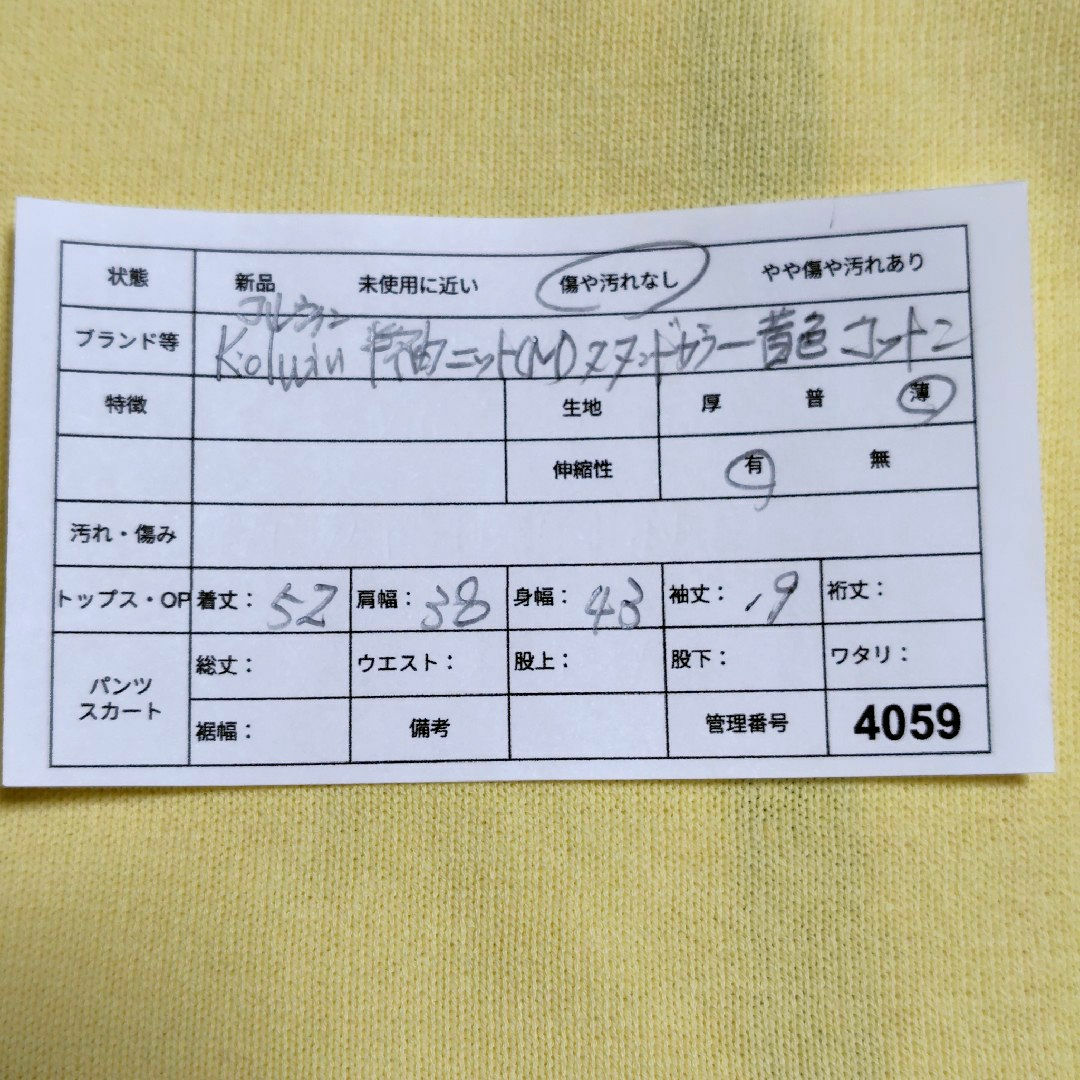 状態 新品 未使用に近い 傷や汚れなし やや傷や汚れあり
コルウィン
ブランド等 Kolwin 半袖ニット(M)スタンドカラー黄色コットン
特徴 生地 厚 普 薄
伸縮性 有 無
汚れ・傷み
トップス・OP 着丈: 52 肩幅: 38 身幅: 43 袖丈: 19 裄丈:
パンツ
スカート
総丈: ウエスト: 股上: 股下: ワタリ:
裾幅: 備考 管理番号 4059